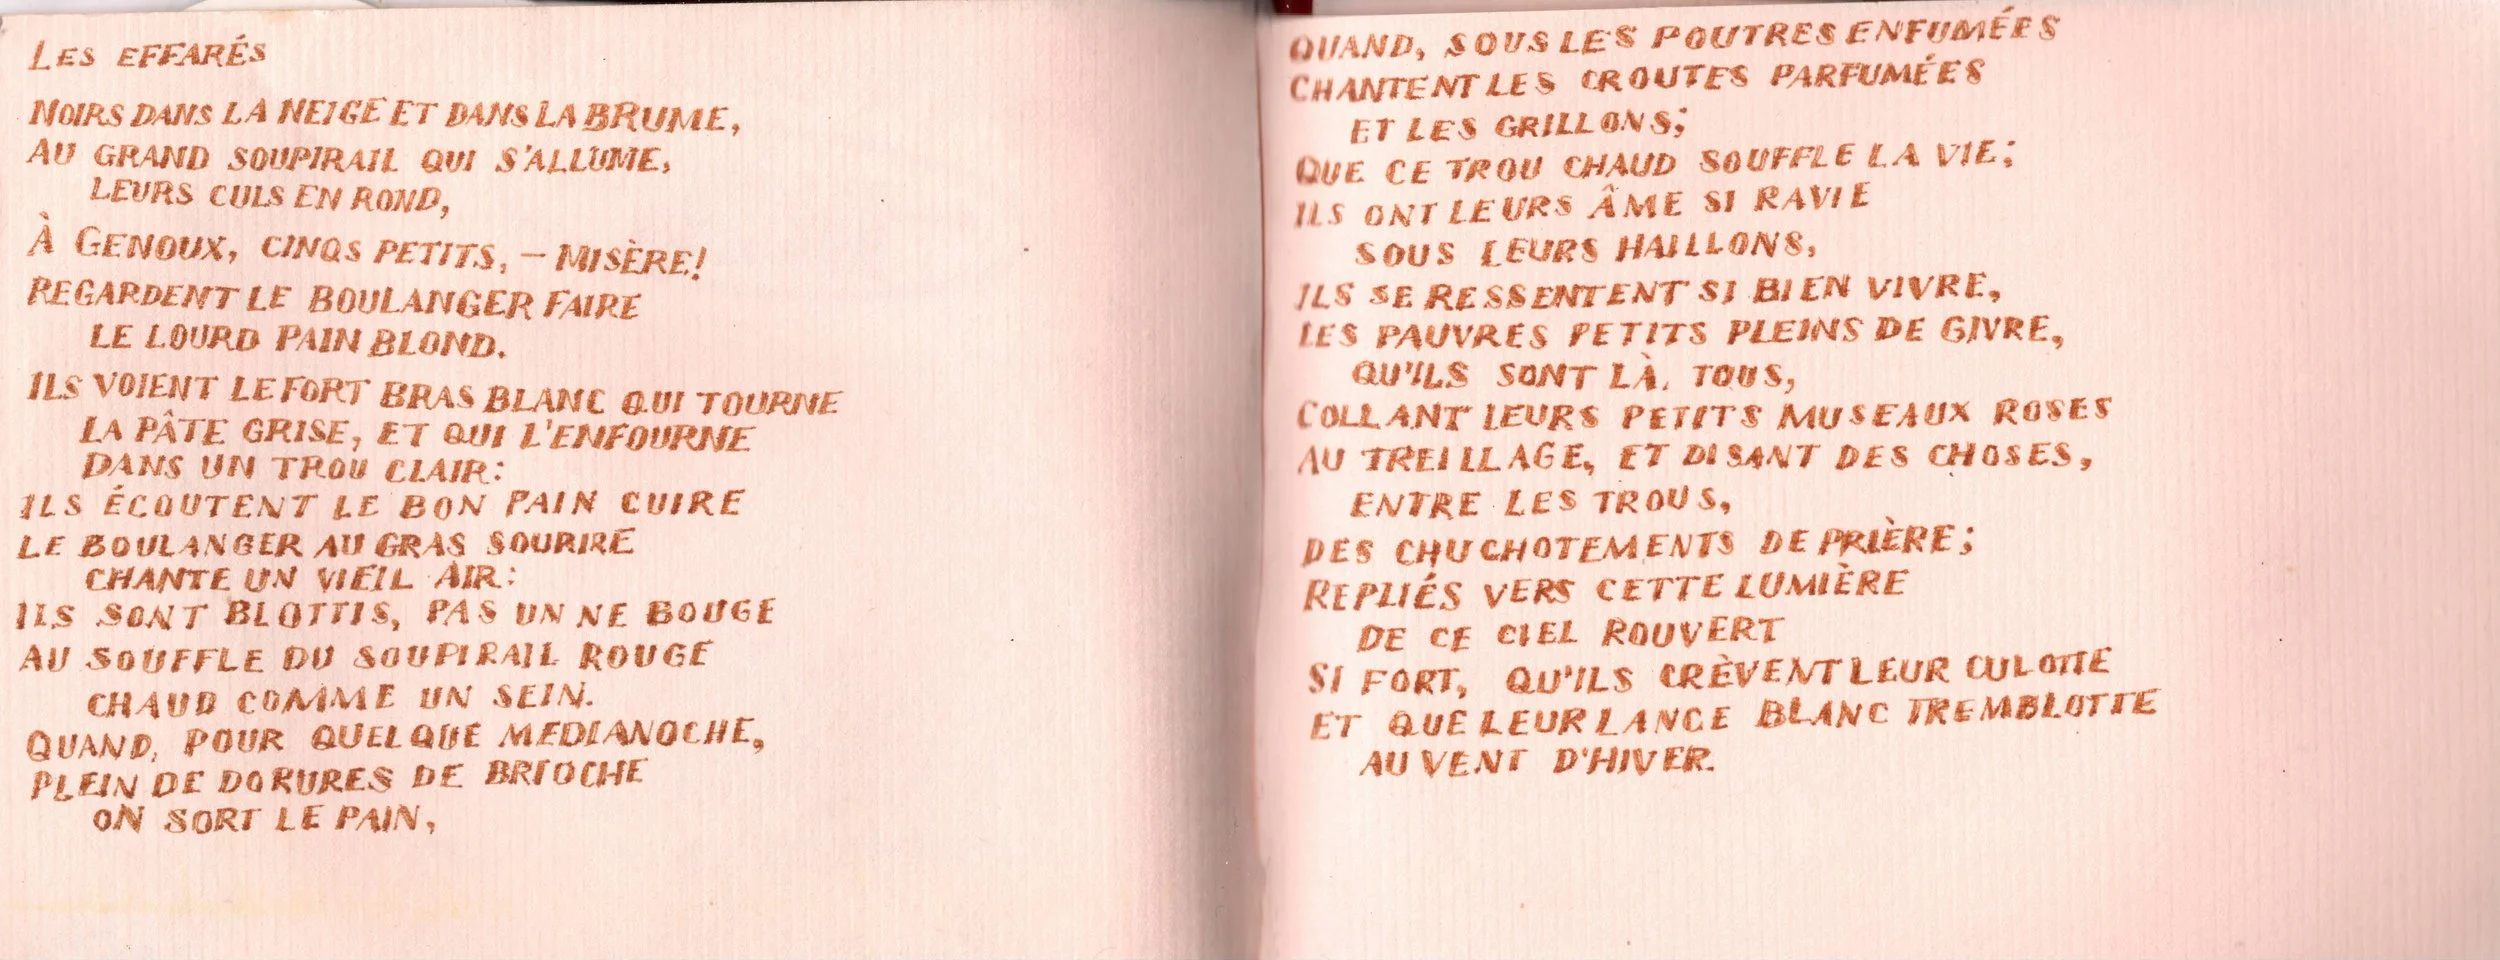 LES EFFARÉS
NOIRS DANS LA NEIGE ET DANS LA BRUME,
AU GRAND SOUPIRAIL QUI S'ALLUME,
LEURS CULS EN ROND,
À GENOUX, CINQS PETITS, – MISÈRE!
REGARDENT LE BOULANGER FAIRE
LE LOURD PAIN BLOND.
ILS VOIENT LE FORT BRAS BLANC QUI TOURNE
LA PÂTE GRISE, ET QUI L'ENFOURNE
DANS UN TROU CLAIR:
ILS ÉCOUTENT LE BON PAIN CUIRE
LE BOULANGER AU GRAS SOURIRE
CHANTE UN VIEIL AIR:
ILS SONT BLOTTIS, PAS UN NE BOUGE
AU SOUFFLE DU SOUPIRAIL ROUGE
CHAUD COMME UN SEIN.
QUAND, POUR QUELQUE MEDIANOCHE,
PLEIN DE DORURES DE BRIOCHE
ON SORT LE PAIN,
QUAND, SOUS LES POUTRES ENFUMÉES
CHANTENT LES CROUTES PARFUMÉES
ET LES GRILLONS;
QUE CE TROU CHAUD SOUFFLE LA VIE;
ILS ONT LEURS ÂME SI RAVIE
SOUS LEURS HAILLONS,
ILS SE RESSENTENT SI BIEN VIVRE,
LES PAUVRES PETITS PLEINS DE GIVRE,
QU'ILS SONT LÀ, TOUS,
COLLANT LEURS PETITS MUSEAUX ROSES
AU TREILLAGE, ET DISANT DES CHOSES,
ENTRE LES TROUS,
DES CHUCHOTEMENTS DE PRIÈRE;
REPLIÉS VERS CETTE LUMIÈRE
DE CE CIEL ROUVERT
SI FORT, QU'ILS CRÈVENT LEUR CULOTTE
ET QUE LEUR LANGE BLANC TREMBLOTTE
AU VENT D'HIVER.